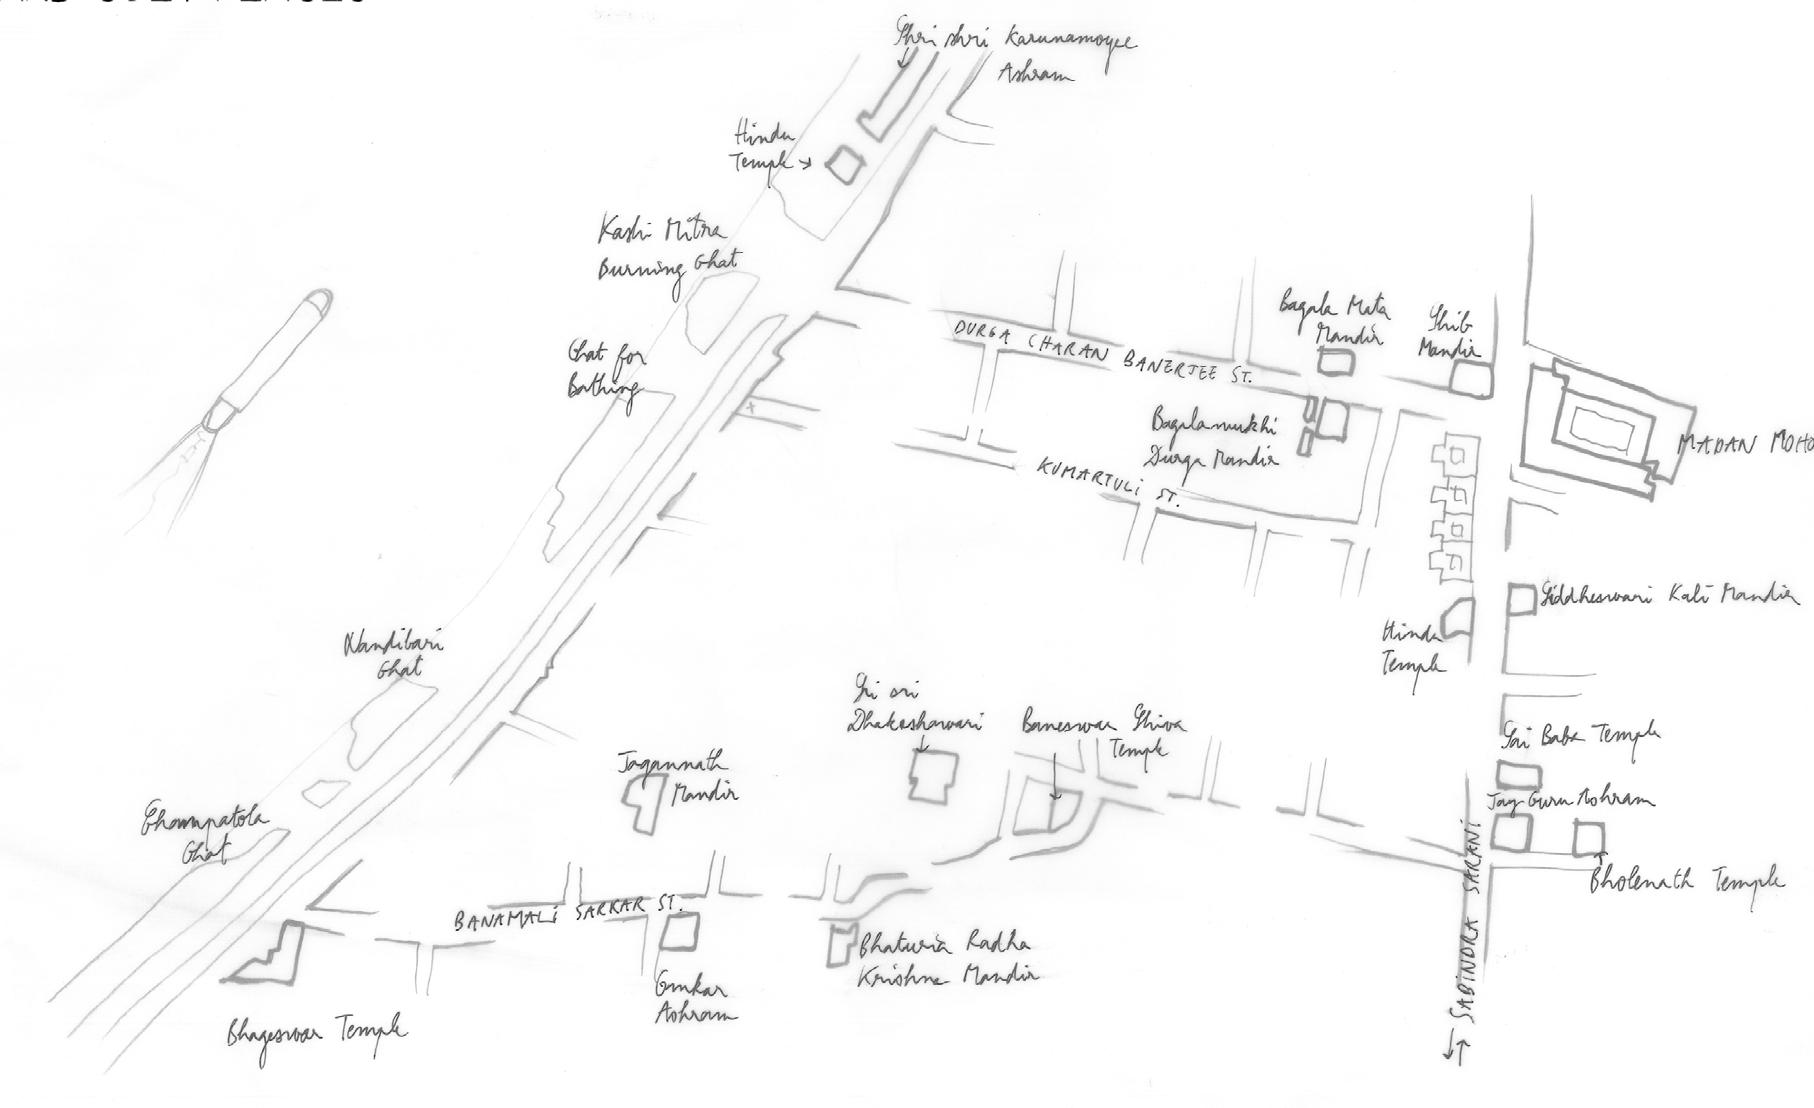 Shri shri Karunamoyee
Ashram
Hindu
Temple
Kashi Mitra
Burning Ghat
Ghat for
Bathing
DURGA CHARAN BANERJEE ST.
Bagala Mata
Mandir
Shib
Mandir
Bagalamukhi
Durga Mandir
MADAN MOHO
KUMARTULI ST.
Siddheswari Kali Mandir
Hindu
Temple
Nandibari
Ghat
Sri sri
Dhakeshawari
Baneswar Shiva
Temple
Sai Baba Temple
Jagannath
Mandir
Jay Guru Ashram
Champatola
Ghat
Bholenath Temple
BANAMALI SARKAR ST.
SABINDRA SARANI
Bhaturia Radha
Krishna Mandir
Omkar
Ashram
Bhageswar Temple